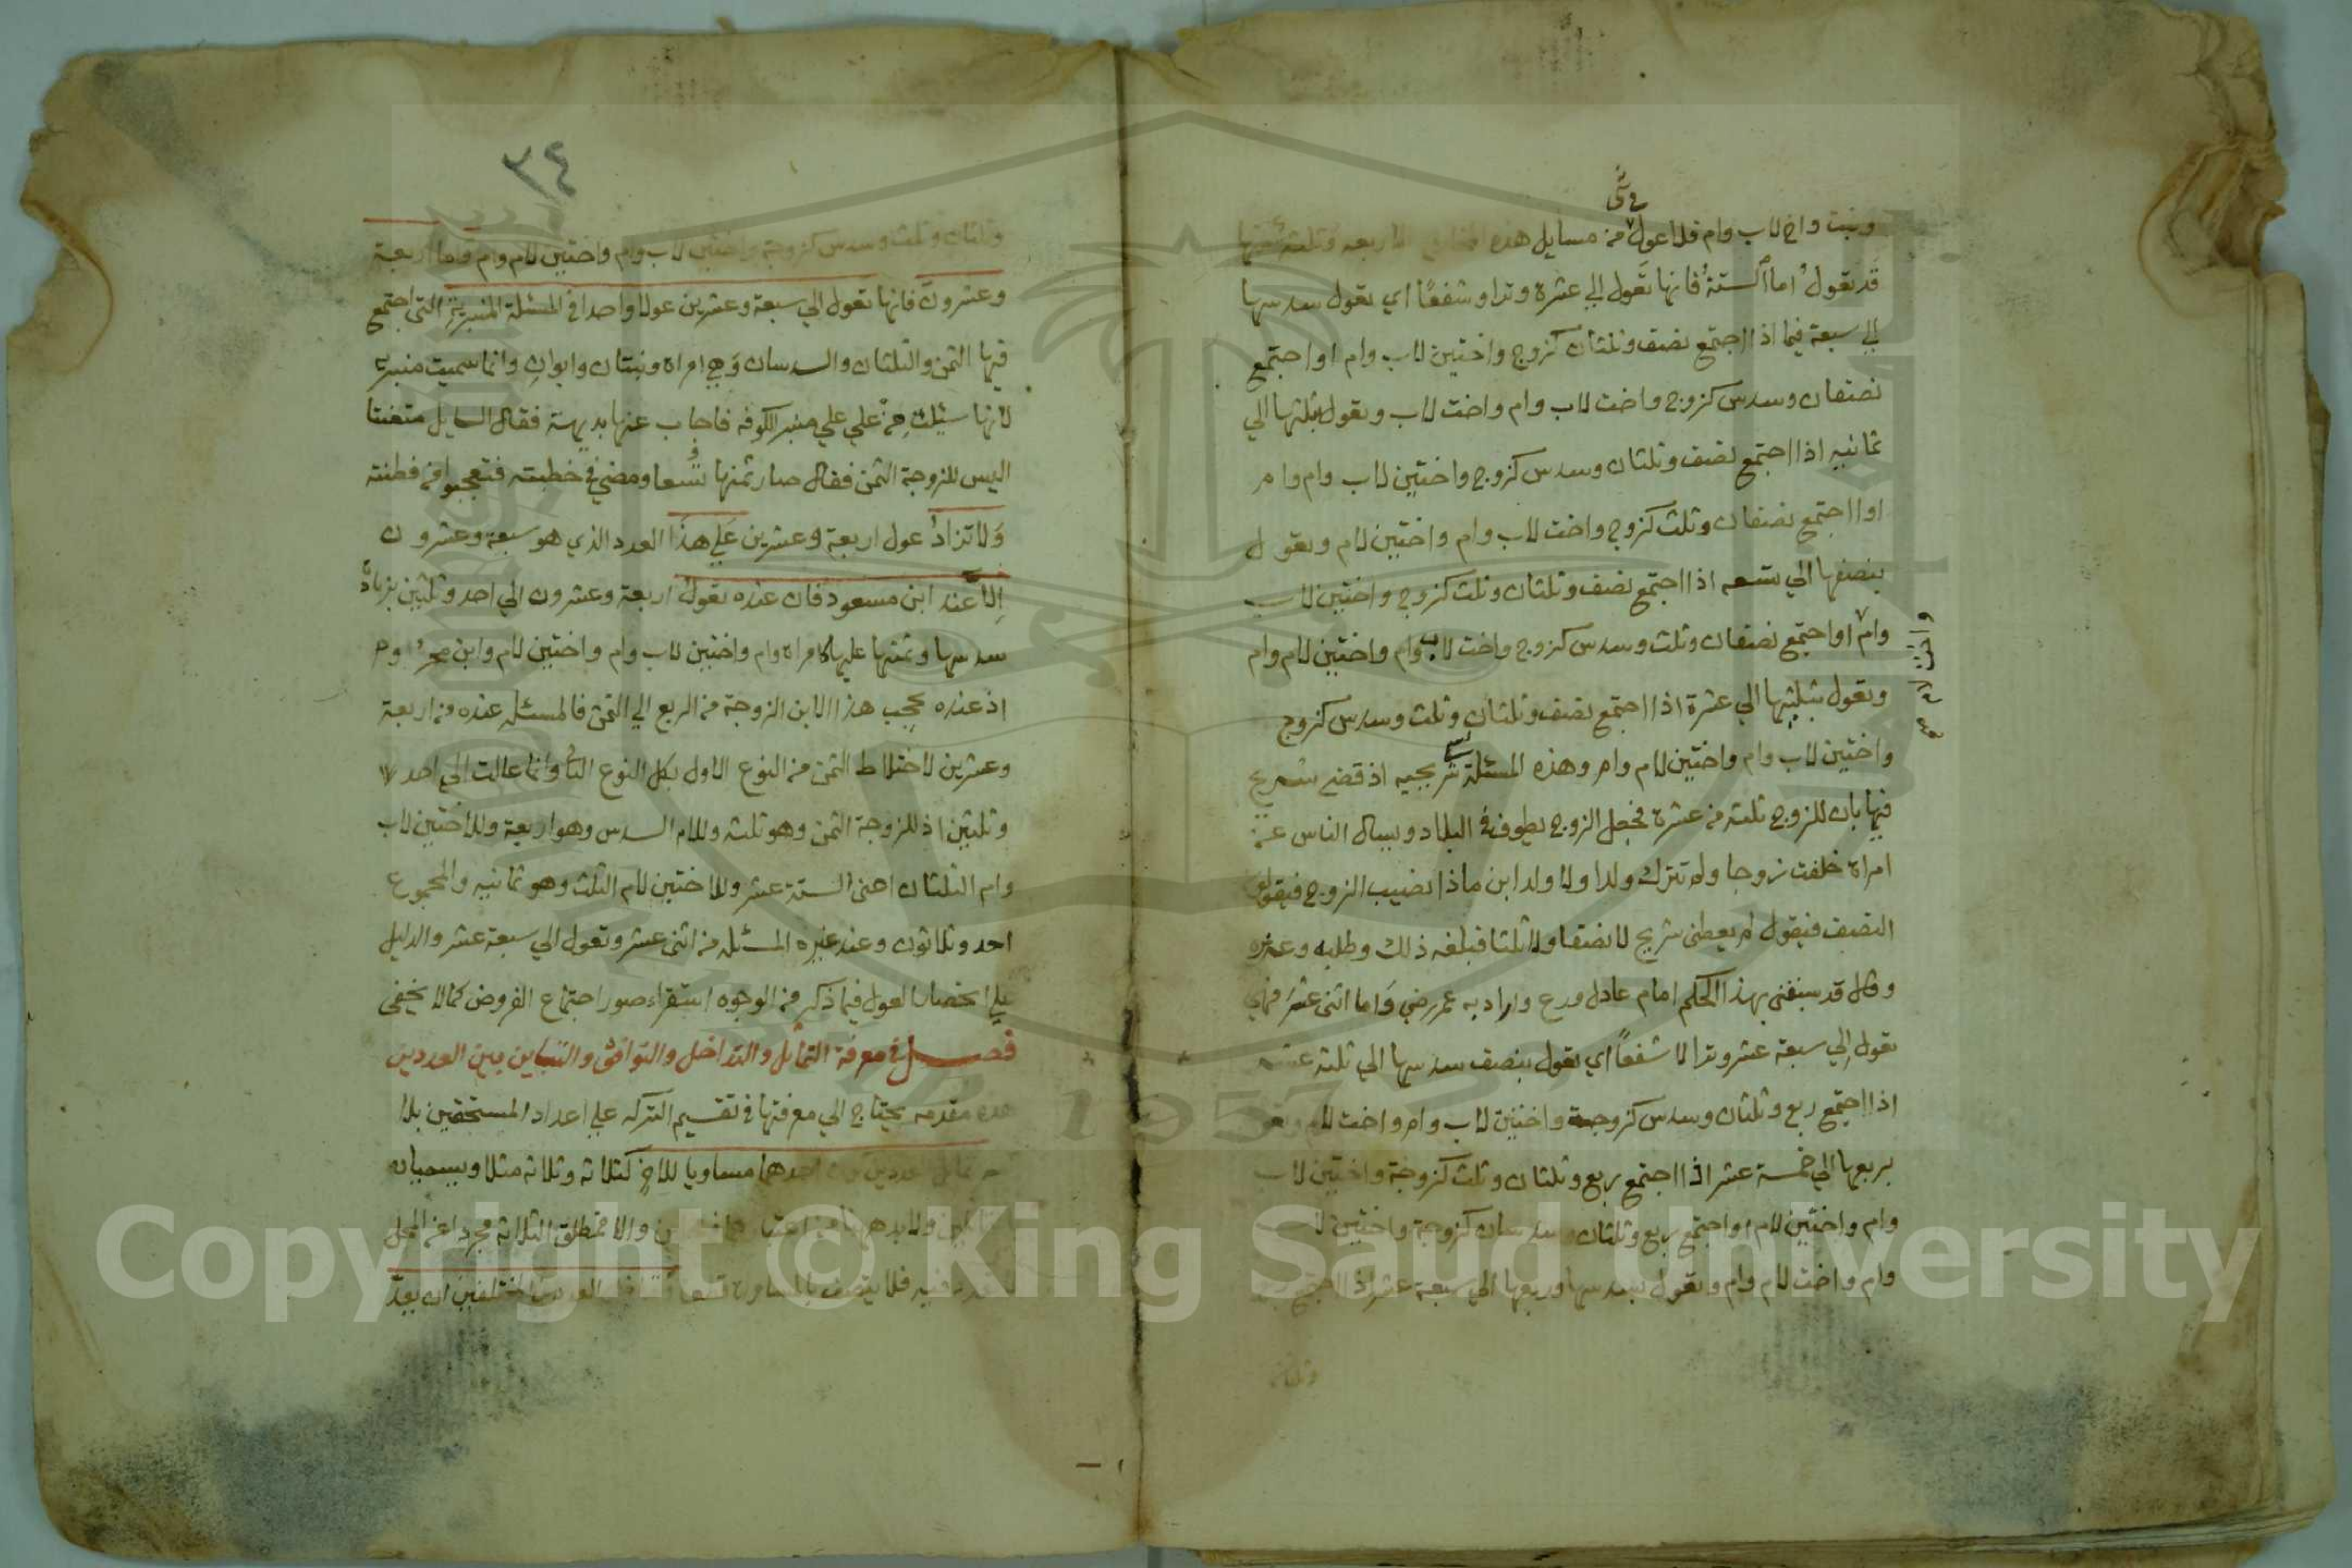 في شي
وبنت واخ لاب وام فلا عول من مسايل هذه الاربعه وثلثة منها
قد يعول اما الستة فانها تعول الي عشرة وترا وشفعا اي يعول سدسها
الي سبعة فيما اذا اجتمع نصف وثلثان كزوج واختين لاب وام او اجتمع
نصفان وسدس كزوج واخت لاب وام واخت لاب ويعول بثلثها الي
ثمانيه اذا اجتمع نصف وثلثان وسدس كزوج واختين لاب وام وام
او اجتمع نصفان وثلث كزوج واخت لاب وام واختين لام ويعول
بنصفها الي تسعه اذا اجتمع نصف وثلثان وثلث كزوج واختين لاب
وام او اجتمع نصفان وثلث وسدس كزوج واخت لاب وام واختين لام وام
ويعول بثلثيها الي عشرة اذا اجتمع نصف وثلثان وثلث وسدس كزوج
واختين لاب وام واختين لام وام وهذه المسئلة تسمي شريحيه اذ قضي شريح
فيها بان للزوج ثلثه من عشرة فجعل الزوج يطوف في البلاد ويسال الناس عن
امراة خلفت زوجا ولم تترك ولدا ولا ولد ابن ماذا نصيب الزوج فيقولون
النصف فيقول لم يعطني شريح لا نصفا ولا ثلثا فبلغه ذلك وطلبه وعزره
وقال قد سبقني بهذا الحكم امام عادل ورع واراد به عمر رضي واما اثني عشر فهي
تعول الي سبعة عشر وترا لا شفعا اي يعول بنصف سدسها الي ثلثة عشر
اذا اجتمع ربع وثلثان وسدس كزوجة واختين لاب وام واخت لام
بربعها الي خمسة عشر اذا اجتمع ربع وثلثان وثلث كزوجة واختين لاب
وام واختين لام او اجتمع ربع وثلثان وسدسان كزوجة واختين
وام واخت لام وام ويعول بسدسها وربعها الي سبعة عشر اذا اجتمع
٣٤
وثلثان وثلث وسدس كزوجة واختين لاب وام واختين لام وام واما اربعة
وعشرون فانها تعول الي سبعة وعشرين عولا واحدا في المسئلة المنبرية التي اجتمع
فيها الثمن والثلثان والسدسان وهي امراة وبنتان وابوان وانما سميت منبرية
لانها سئلت من علي علي منبر الكوفه فاجاب عنها بديهة فقال السايل متعنتا
اليس للزوجة الثمن فقال صار ثمنها تسعا ومضي في خطبته فتعجبوا من فطنته
ولا تزاد عول اربعة وعشرين علي هذا العدد الذي هو سبعة وعشرون
الا عند ابن مسعود فان عنده تعول اربعة وعشرون الي احد وثلثين بزيادة
سدسها وثمنها عليها كامراة وام واختين لاب وام واختين لام وابن محروم
اذ عنده يحجب هذا الابن الزوجة من الربع الي الثمن فالمسئله عنده من اربعة
وعشرين لاختلاط الثمن من النوع الاول بكل النوع الثا وانما عالت الي احد
وثلثين اذ للزوجة الثمن وهو ثلثه وللام السدس وهو اربعة وللاختين لاب
وام الثلثان اعني الستة عشر وللاختين لام الثلث وهو ثمانيه والمجموع
احد وثلاثون وعند غيره المسئله من اثني عشر وتعول الي سبعة عشر والدليل
علي انحصار العول فيما ذكر من الوجوه استقراء صور اجتماع الفروض كما لا يخفي
فصل في معرفة التماثل والتداخل والتوافق والتباين بين العددين
هذه مقدمه يحتاج الي معرفتها في تقسيم التركه علي اعداد المستحقين بلا
تماثل العددين كون احدهما مساويا للاخر كثلاثة وثلاثة مثلا ويسميان
والا فمطلق الثلاثة مجردا عن المحل
فيه فلا يتصف بالمساواة العددين المختلفين ان يعد